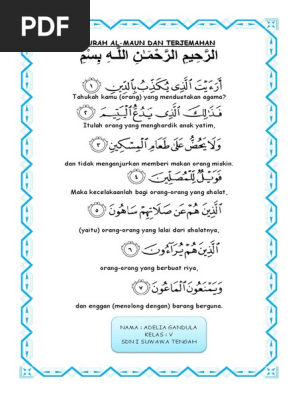 PDF
URAH AL-MAUN DAN TERJEMAHAN
بِسْمِ اللَّـهِ الرَّحْمَـٰنِ الرَّحِيمِ
أَرَءَيْتَ ٱلَّذِى يُكَذِّبُ بِٱلدِّينِ ﴿١﴾
Tahukah kamu (orang) yang mendustakan agama?
فَذَٰلِكَ ٱلَّذِى يَدُعُّ ٱلْيَتِيمَ ﴿٢﴾
Itulah orang yang menghardik anak yatim,
وَلَا يَحُضُّ عَلَىٰ طَعَامِ ٱلْمِسْكِينِ ﴿٣﴾
dan tidak menganjurkan memberi makan orang miskin.
فَوَيْلٌ لِّلْمُصَلِّينَ ﴿٤﴾
Maka kecelakaanlah bagi orang-orang yang shalat,
ٱلَّذِينَ هُمْ عَن صَلَاتِهِمْ سَاهُونَ ﴿٥﴾
(yaitu) orang-orang yang lalai dari shalatnya,
ٱلَّذِينَ هُمْ يُرَآءُونَ ﴿٦﴾
orang-orang yang berbuat riya,
وَيَمْنَعُونَ ٱلْمَاعُونَ ﴿٧﴾
dan enggan (menolong dengan) barang berguna.
NAMA : ADELIA GANDULA
KELAS : V
SDN I SUWAWA TENGAH